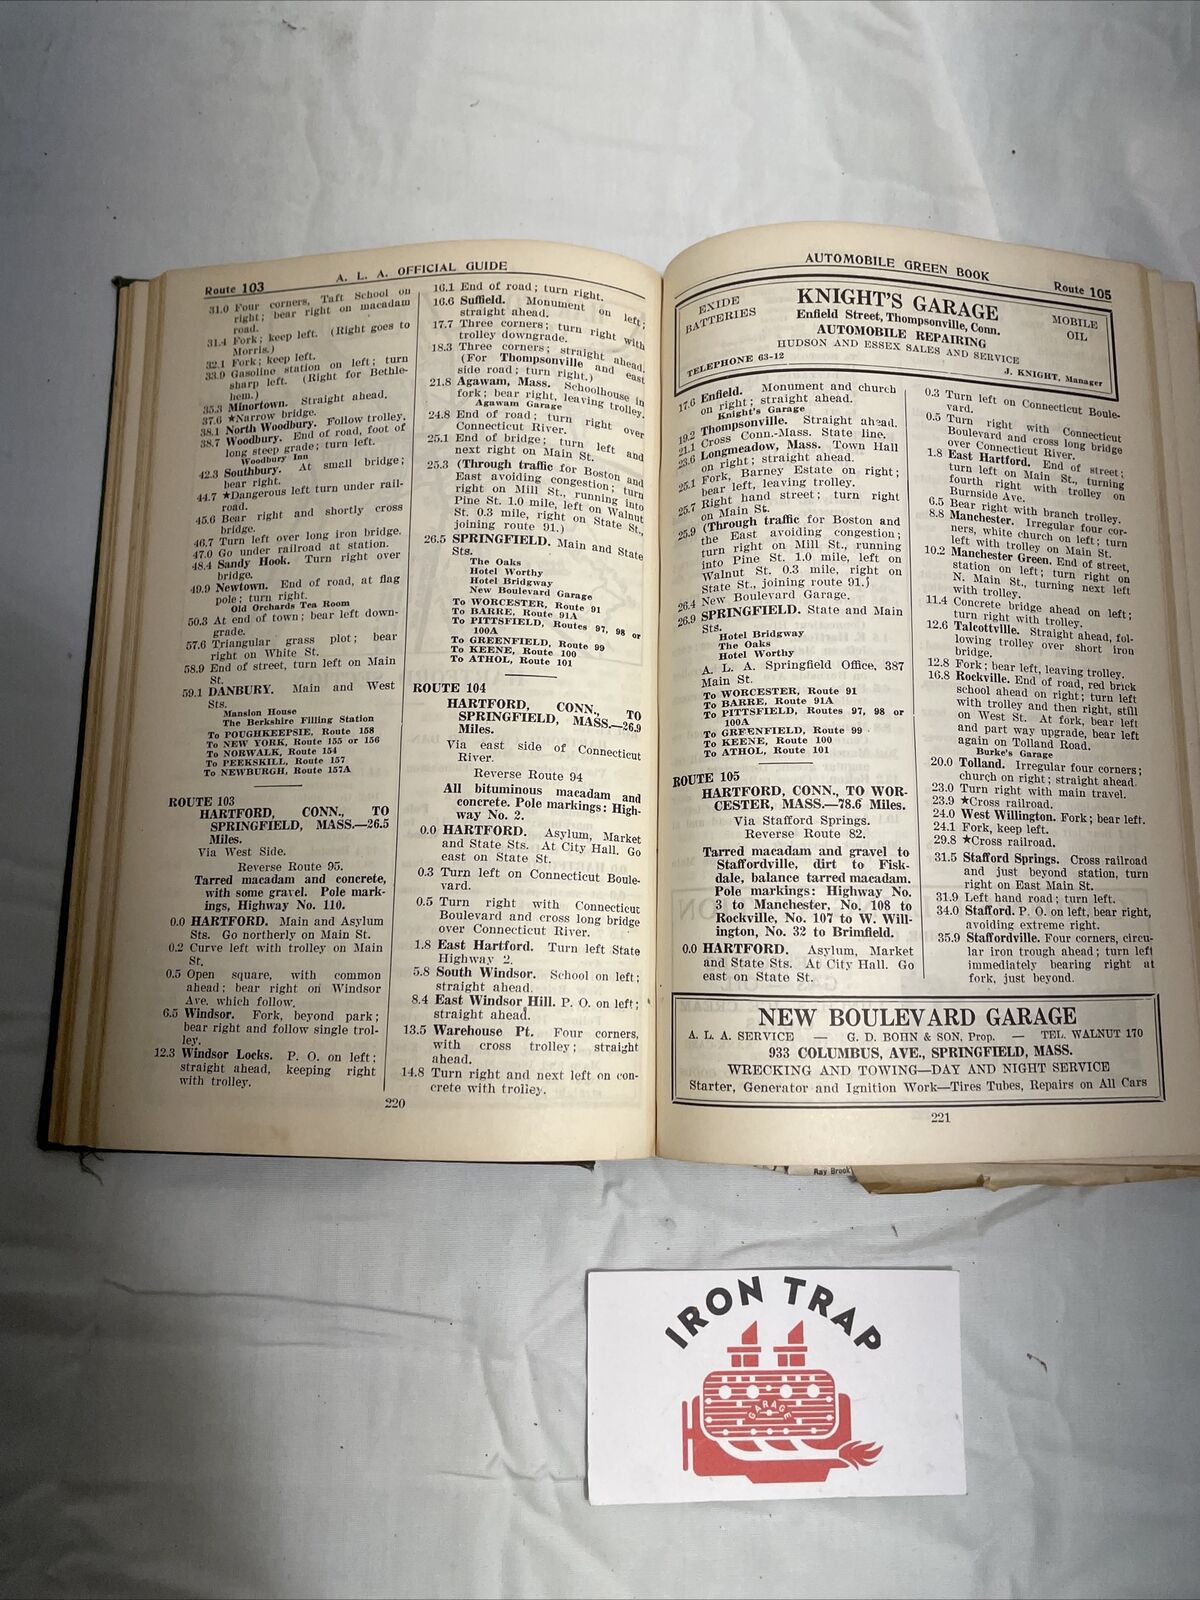 Route 103
A. L. A. OFFICIAL GUIDE
31.0 Four corners, Taft School on
right; bear right on macadam
road.
31.4 Fork; keep left. (Right goes to
Morris.)
32.1 Fork; keep left.
33.9 Gasoline station on left; turn
sharp left. (Right for Bethle-
hem.)
35.3 Minortown. Straight ahead.
37.6 ★Narrow bridge.
38.1 North Woodbury. Follow trolley.
38.7 Woodbury. End of road, foot of
long steep grade; turn left.
Woodbury Inn
42.3 Southbury. At small bridge;
bear right.
44.7 ★Dangerous left turn under rail-
road.
45.6 Bear right and shortly cross
bridge.
46.7 Turn left over long iron bridge.
47.0 Go under railroad at station.
48.4 Sandy Hook. Turn right over
bridge.
49.9 Newtown. End of road, at flag
pole; turn right.
Old Orchards Tea Room
50.3 At end of town; bear left down-
grade.
57.6 Triangular grass plot; bear
right on White St.
58.9 End of street, turn left on Main
St.
59.1 DANBURY. Main and West
Sts.
Mansion House
The Berkshire Filling Station
To POUGHKEEPSIE, Route 158
To NEW YORK, Route 155 or 156
To NORWALK, Route 154
To PEEKSKILL, Route 157
To NEWBURGH, Route 157A
ROUTE 103
HARTFORD, CONN., TO
SPRINGFIELD, MASS.—26.5
Miles.
Via West Side.
Reverse Route 95.
Tarred macadam and concrete,
with some gravel. Pole mark-
ings, Highway No. 110.
0.0 HARTFORD. Main and Asylum
Sts. Go northerly on Main St.
0.2 Curve left with trolley on Main
St.
0.5 Open square, with common
ahead; bear right on Windsor
Ave. which follow.
6.5 Windsor. Fork, beyond park;
bear right and follow single trol-
ley.
12.3 Windsor Locks. P. O. on left;
straight ahead, keeping right
with trolley.
16.1 End of road; turn right.
16.6 Suffield. Monument on left;
straight ahead.
17.7 Three corners; turn right with
trolley downgrade.
18.3 Three corners; straight ahead.
(For Thompsonville and east
side road; turn right.)
21.8 Agawam, Mass. Schoolhouse in
fork; bear right, leaving trolley.
Agawam Garage
24.8 End of road; turn right over
Connecticut River.
25.1 End of bridge; turn left and
next right on Main St.
25.3 (Through traffic for Boston and
East avoiding congestion; turn
right on Mill St., running into
Pine St. 1.0 mile, left on Walnut
St. 0.3 mile, right on State St.,
joining route 91.)
26.5 SPRINGFIELD. Main and State
Sts.
The Oaks
Hotel Worthy
Hotel Bridgway
New Boulevard Garage
To WORCESTER, Route 91
To BARRE, Route 91A
To PITTSFIELD, Routes 97, 98 or
100A
To GREENFIELD, Route 99
To KEENE, Route 100
To ATHOL, Route 101
ROUTE 104
HARTFORD, CONN., TO
SPRINGFIELD, MASS.—26.9
Miles.
Via east side of Connecticut
River.
Reverse Route 94
All bituminous macadam and
concrete. Pole markings: High-
way No. 2.
0.0 HARTFORD. Asylum, Market
and State Sts. At City Hall. Go
east on State St.
0.3 Turn left on Connecticut Boule-
vard.
0.5 Turn right with Connecticut
Boulevard and cross long bridge
over Connecticut River.
1.8 East Hartford. Turn left State
Highway 2.
5.8 South Windsor. School on left;
straight ahead.
8.4 East Windsor Hill. P. O. on left;
straight ahead.
13.5 Warehouse Pt. Four corners,
with cross trolley; straight
ahead.
14.8 Turn right and next left on con-
crete with trolley.
220
AUTOMOBILE GREEN BOOK
Route 105
EXIDE
BATTERIES
KNIGHT'S GARAGE
Enfield Street, Thompsonville, Conn.
AUTOMOBILE REPAIRING
HUDSON AND ESSEX SALES AND SERVICE
MOBILE
OIL
TELEPHONE 63-12
J. KNIGHT, Manager
17.6 Enfield. Monument and church
on right; straight ahead.
Knight's Garage
19.2 Thompsonville. Straight ahead.
21.1 Cross Conn.-Mass. State line.
23.6 Longmeadow, Mass. Town Hall
on right; straight ahead.
25.1 Fork, Barney Estate on right;
bear left, leaving trolley.
25.7 Right hand street; turn right
on Main St.
25.9 (Through traffic for Boston and
the East avoiding congestion;
turn right on Mill St., running
into Pine St. 1.0 mile, left on
Walnut St. 0.3 mile, right on
State St., joining route 91.)
26.4 New Boulevard Garage.
26.9 SPRINGFIELD. State and Main
Sts.
Hotel Bridgway
The Oaks
Hotel Worthy
A. L. A. Springfield Office, 387
Main St.
To WORCESTER, Route 91
To BARRE, Route 91A
To PITTSFIELD, Routes 97, 98 or
100A
To GREENFIELD, Route 99
To KEENE, Route 100
To ATHOL, Route 101
ROUTE 105
HARTFORD, CONN., TO WOR-
CESTER, MASS.—78.6 Miles.
Via Stafford Springs.
Reverse Route 82.
Tarred macadam and gravel to
Staffordville, dirt to Fisk-
dale, balance tarred macadam.
Pole markings: Highway No.
3 to Manchester, No. 108 to
Rockville, No. 107 to W. Will-
ington, No. 32 to Brimfield.
0.0 HARTFORD. Asylum, Market
and State Sts. At City Hall. Go
east on State St.
0.3 Turn left on Connecticut Boule-
vard.
0.5 Turn right with Connecticut
Boulevard and cross long bridge
over Connecticut River.
1.8 East Hartford. End of street;
turn left on Main St., turning
fourth right with trolley on
Burnside Ave.
6.5 Bear right with branch trolley.
8.8 Manchester. Irregular four cor-
ners, white church on left; turn
left with trolley on Main St.
10.2 Manchester Green. End of street,
station on left; turn right on
N. Main St., turning next left
with trolley.
11.4 Concrete bridge ahead on left;
turn right with trolley.
12.6 Talcottville. Straight ahead, fol-
lowing trolley over short iron
bridge.
12.8 Fork; bear left, leaving trolley.
16.8 Rockville. End of road, red brick
school ahead on right; turn left
with trolley and then right, still
on West St. At fork, bear left
and part way upgrade, bear left
again on Tolland Road.
Burke's Garage
20.0 Tolland. Irregular four corners;
church on right; straight ahead.
23.0 Turn right with main travel.
23.9 ★Cross railroad.
24.0 West Willington. Fork; bear left.
24.1 Fork, keep left.
29.8 ★Cross railroad.
31.5 Stafford Springs. Cross railroad
and just beyond station, turn
right on East Main St.
31.9 Left hand road; turn left.
34.0 Stafford. P. O. on left, bear right,
avoiding extreme right.
35.9 Staffordville. Four corners, circu-
lar iron trough ahead; turn left
immediately bearing right at
fork, just beyond.
NEW BOULEVARD GARAGE
A. L. A. SERVICE — G. D. BOHN & SON, Prop. — TEL. WALNUT 170
933 COLUMBUS, AVE., SPRINGFIELD, MASS.
WRECKING AND TOWING—DAY AND NIGHT SERVICE
Starter, Generator and Ignition Work—Tires Tubes, Repairs on All Cars
221
Ray Brook
IRON TRAP
GARAGE